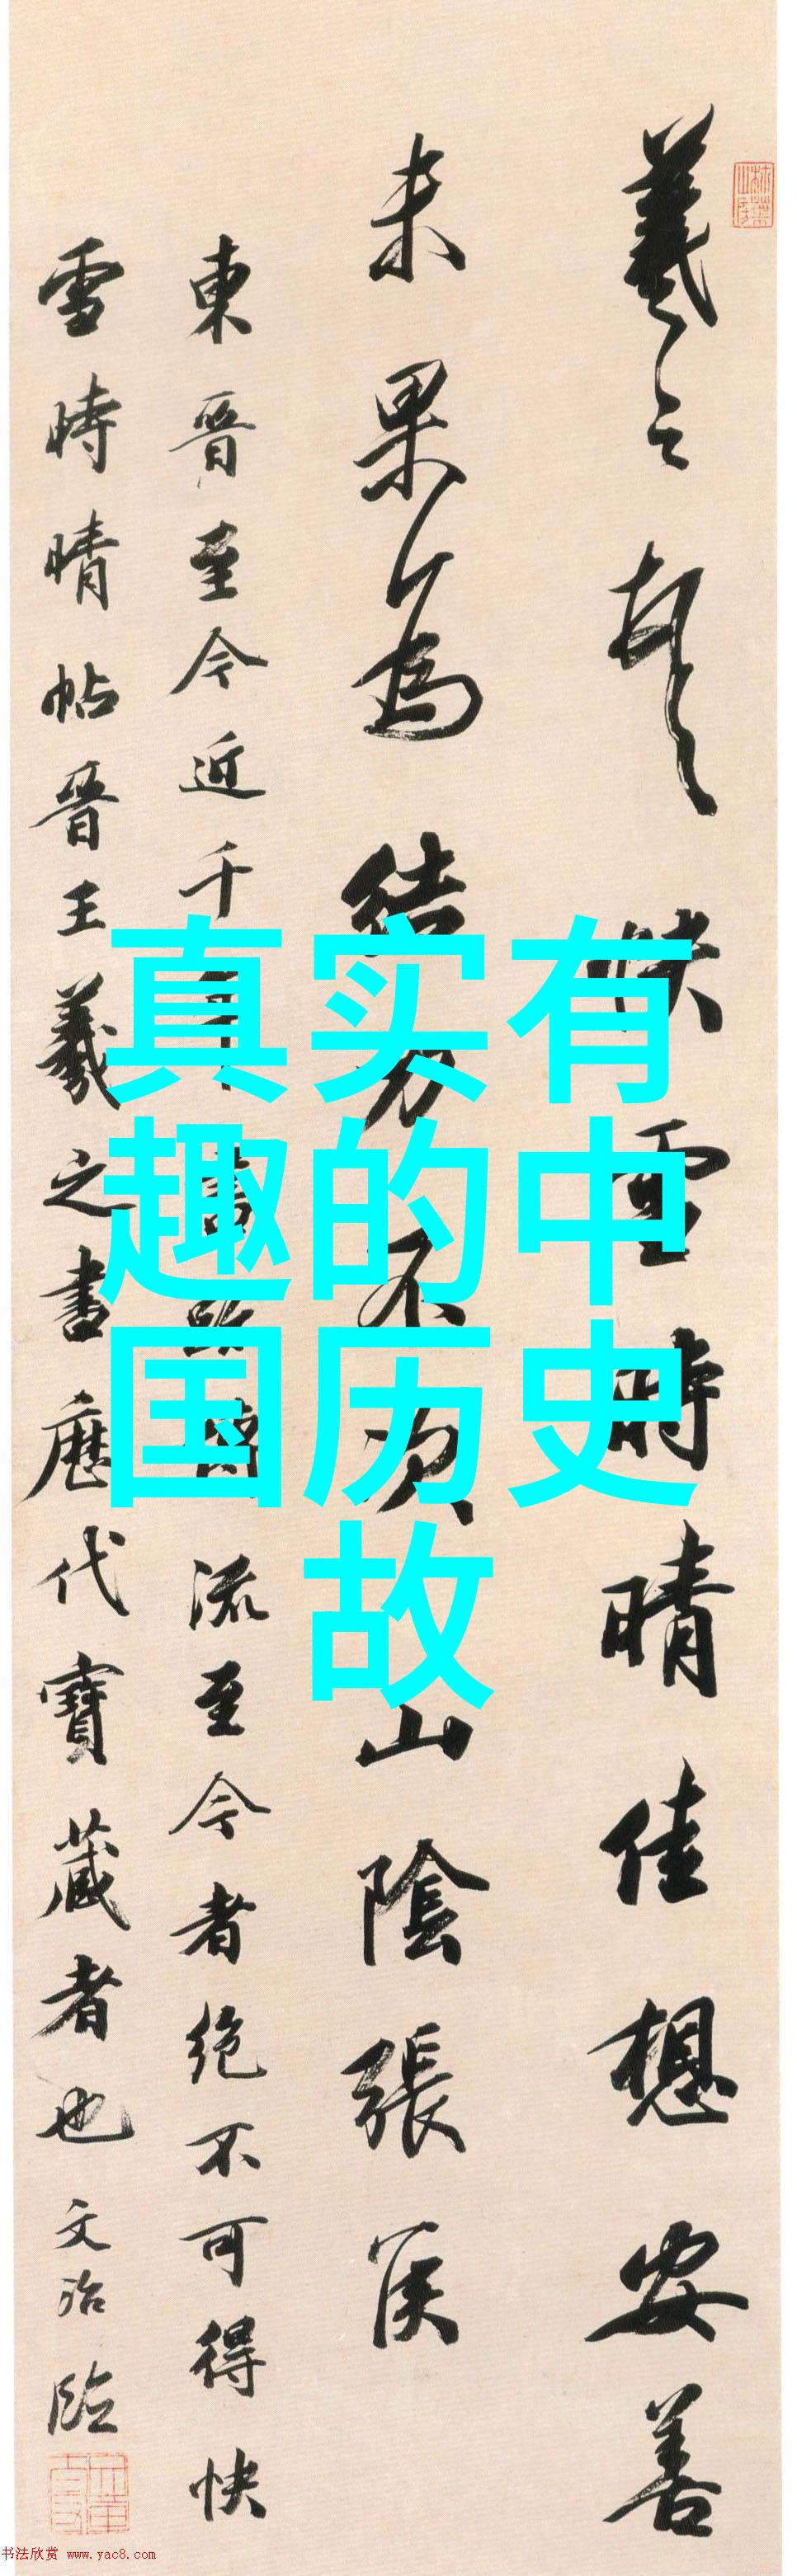 羲之頓首快雪時晴佳想安善
未果為結力不次山陰張侯
東晉至今近千年書跡傳流至今者絕不可得快
雪時晴帖晉王羲之書歷代寶藏者也文治臨
真实有
趣的中
国历史
故
书法欣赏 www.yac8.com